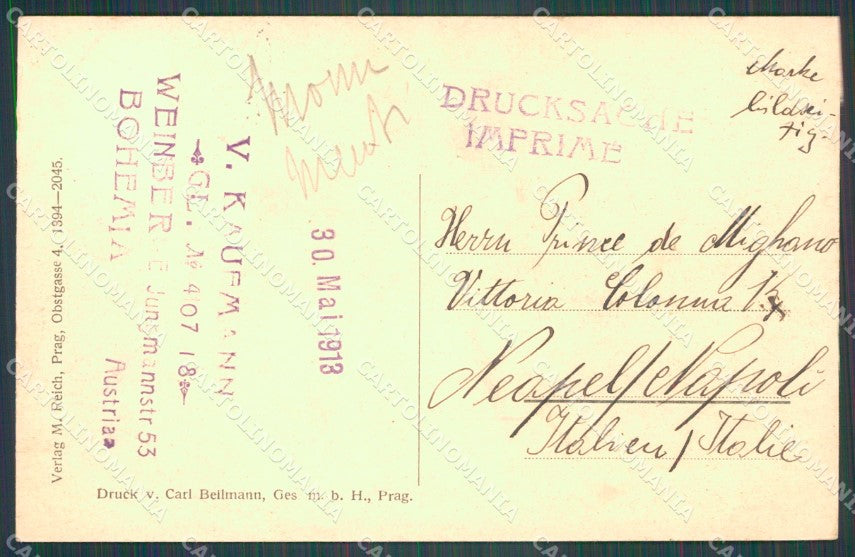 DRUCKSACHE
IMPRIMÉ
Marke
bildsei-
tig.
Herrn Prince de Mighano
Vittoria Colonna
Neapel/Napoli
Italien/Italie
V. KAUFMANN
GL. No 407 18
WEINBERGE Jungmannstr 53
BOHEMIA
Austria
30. Mai 1913
Verlag M. Reich, Prag, Obstgasse 4. 1394—2045.
Druck v. Carl Bellmann, Ges. m. b. H., Prag.
CARTOLINOMANIA